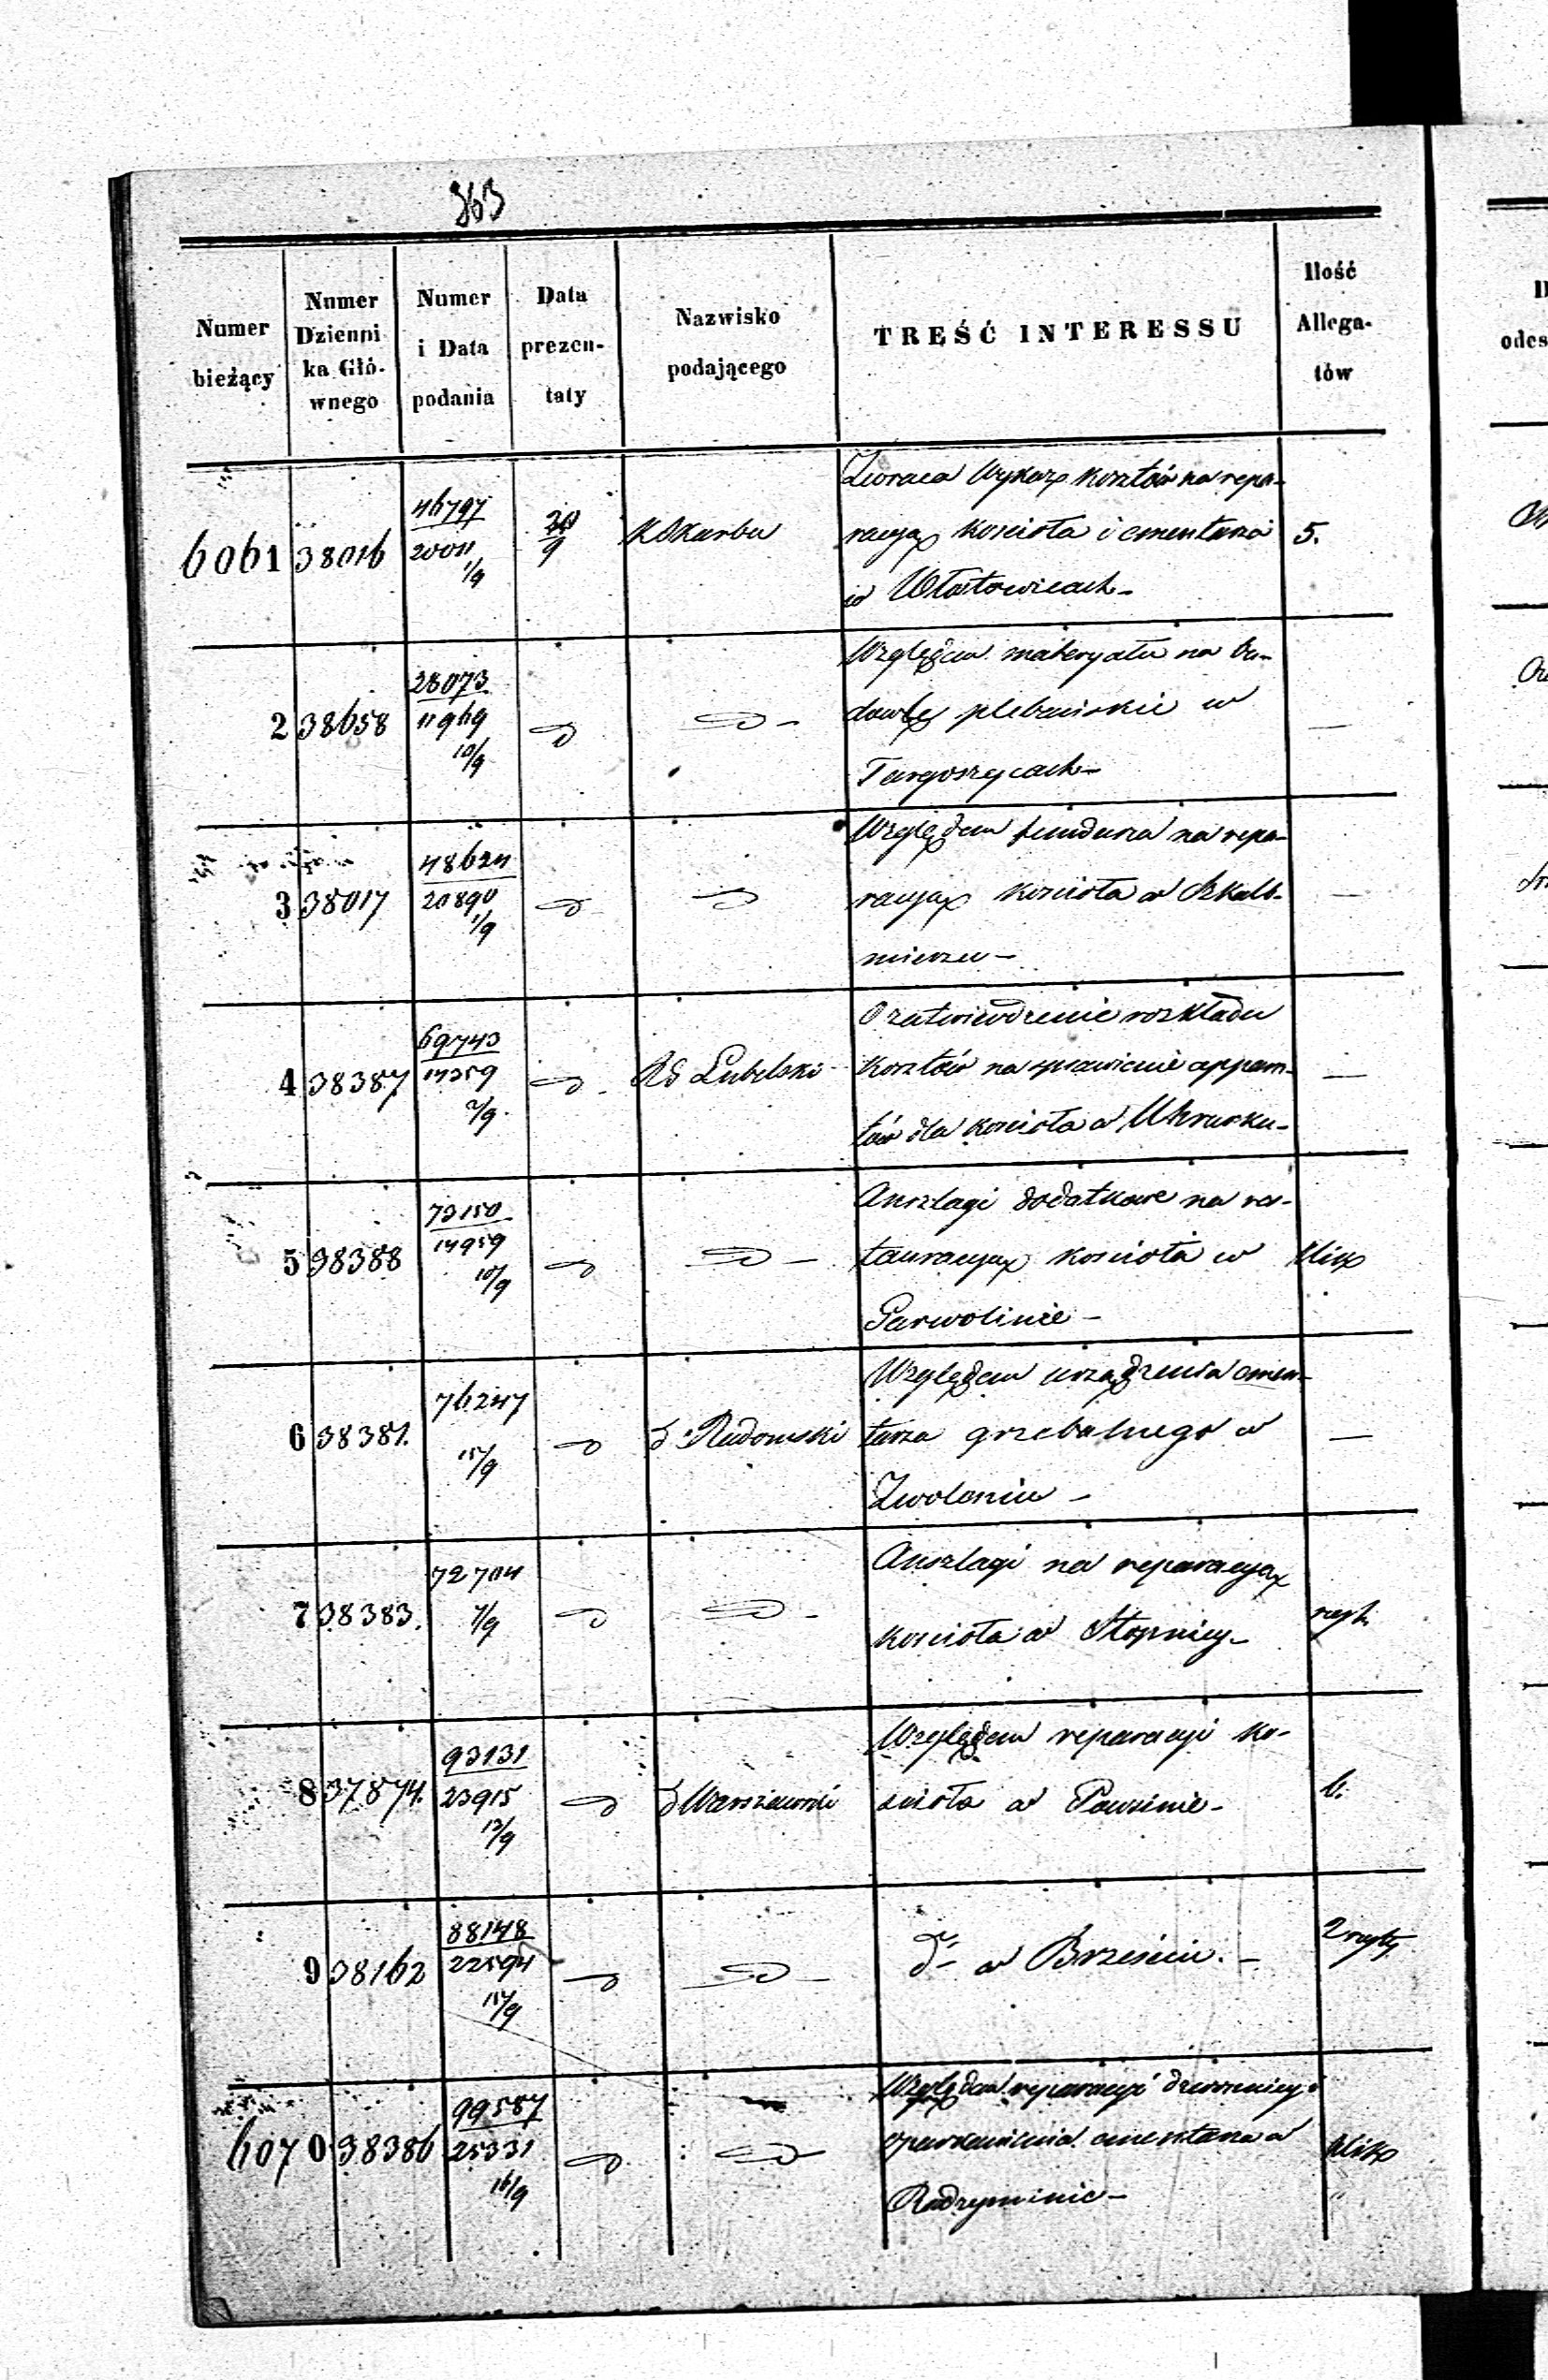 363
Numer
bieżący
Numer
Dzienni
ka Głó-
wnego
Numer
i Data
podania
Data
prezen-
taty
Nazwisko
podającego
TREŚĆ INTERESSU
Ilość
Allega-
tów
6061 38016
46797
20011
1/9
20
9
K S Karbu
Zwraca Wykaz kosztów na repa-
racyą kościoła i cmentarza
w Włostowicach-
5.
2 38658
28073
11969
10/9
Względem materyału na bu-
dowlę plebańskie w
Targoszycach-
—
3 38017
48624
20890
1/9
Względem funduszu na repa-
racyą kościoła w Szkalb-
mierzu-
—
4 38387
69743
14359
2/9.
Rd Lubelski
O zatwierdzenie rozkładu
kosztów na sprawienie appara-
tów dla kościoła w Uhrusku-
—
5 38388
73150
14959
10/9
Anszlagi dodatkowe na res-
tauracyą kościoła w
Parwolinie-
plik
6 38381.
76247
15/9
d° Radomski
Względem urządzenia cmen-
tarza grzebalnego w
Zwoleniu-
—
7 38383.
72704
7/9
Anszlagi na reparacyą
kościoła w Stopnicy-
8 37874.
93131
23915
12/9
d Warszawski
Względem reparacyi ko-
ścioła w Powsinie-
6.
9 38162
88148
22594
15/9
d° w Brześciu.-
6070 38386
99587
25331
16/9
Względem reparacyi dzwonnicy i
oparkanienia cmentarza w
Radzyminie-
plik